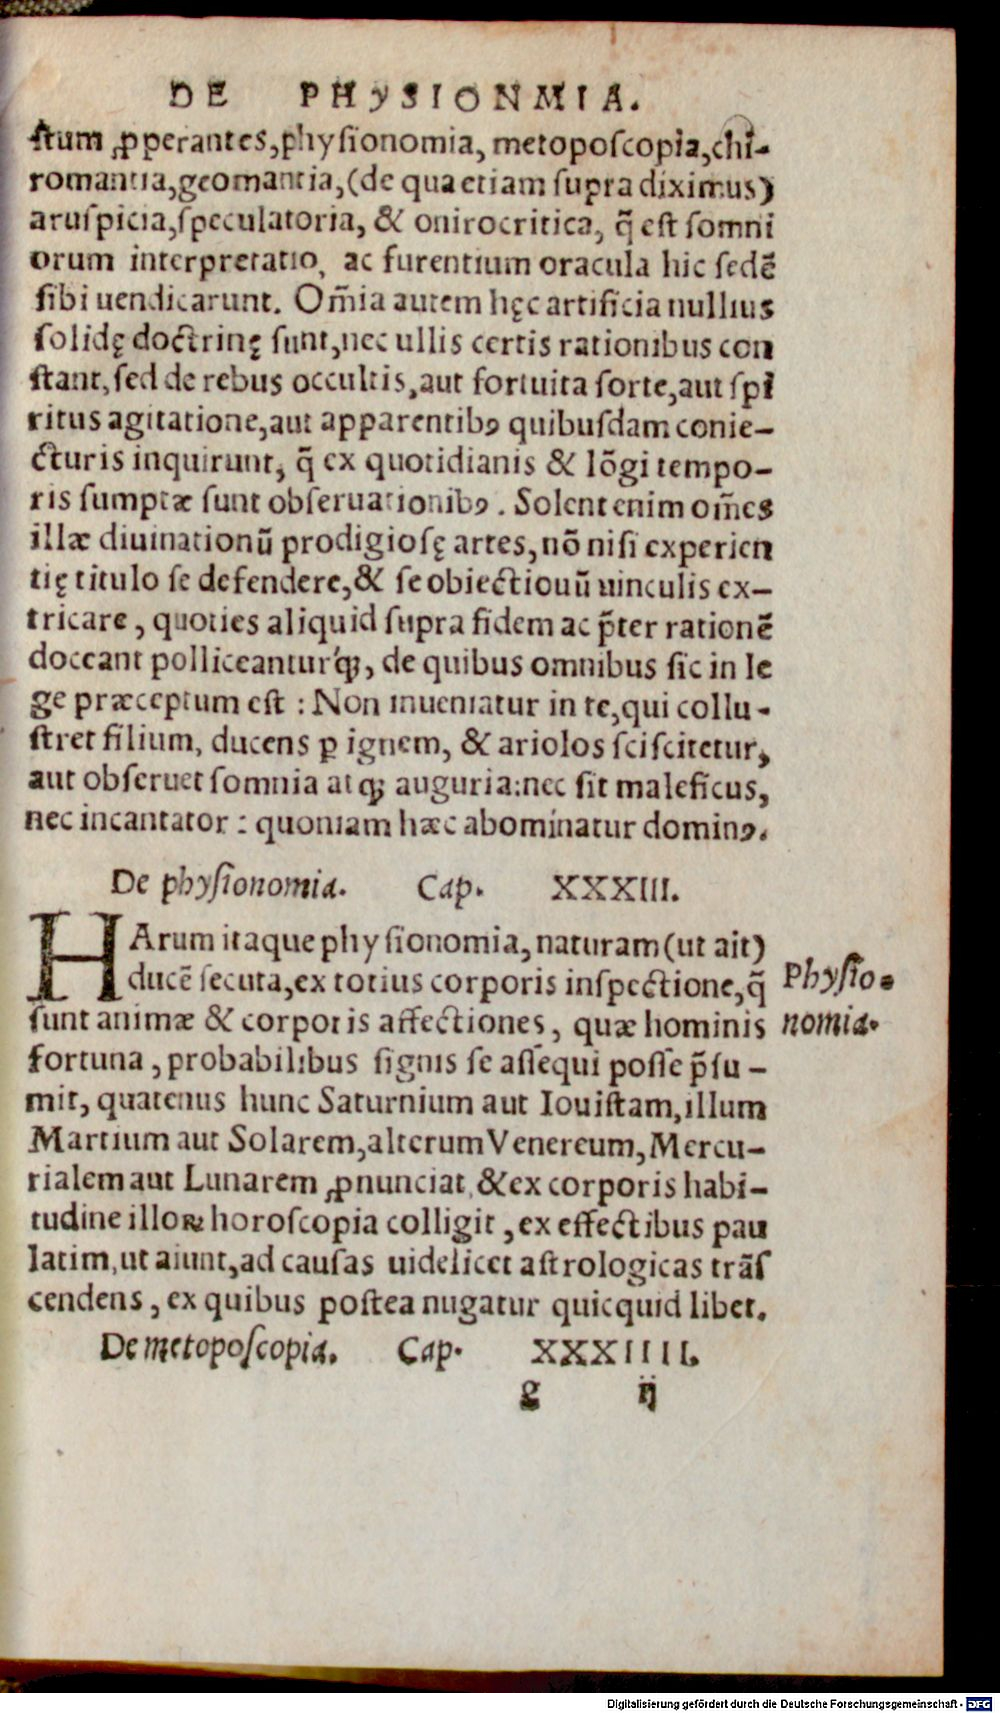 DE PHySIONMIA.
ſtum ꝓperantes,phyſionomia, metopoſcopia,chi-
romantia,geomantia,(de qua etiam ſupra diximus)
aruſpicia,ſpeculatoria, & onirocritica, q̃ eſt ſomni
orum interpretatio, ac furentium oracula hic ſedẽ
ſibi uendicarunt. Om̃ia autem hęc artificia nullius
ſolidę doctrinę ſunt,nec ullis certis rationibus con
ſtant,ſed de rebus occultis,aut fortuita ſorte,aut ſpi
ritus agitatione,aut apparentibꝰ quibuſdam conie-
cturis inquirunt, q̃ ex quotidianis & lõgi tempo-
ris ſumptæ ſunt obſeruationibꝰ. Solent enim om̃es
illæ diuinationũ prodigioſę artes,nõ niſi experien
tię titulo ſe defendere,& ſe obiectiouũ uinculis ex-
tricare, quoties aliquid ſupra fidem ac p̃ter rationẽ
doceant polliceanturq́ꝫ, de quibus omnibus ſic in le
ge præceptum eſt : Non inueniatur in te,qui collu-
ſtret filium, ducens ꝑ ignem, & ariolos ſciſcitetur,
aut obſeruet ſomnia atqꝫ auguria:nec ſit maleficus,
nec incantator : quoniam hæc abominatur dominꝰ.
De phyſionomia. Cap. XXXIII.
HArum itaque phyſionomia,naturam(ut ait)
ducẽ ſecuta,ex totius corporis inſpectione,q̃
ſunt animæ & corporis affectiones, quæ hominis
fortuna, probabilibus ſignis ſe aſſequi poſſe p̃ſu-
mit, quatenus hunc Saturnium aut Iouiſtam,illum
Martium aut Solarem,alterum Venereum,Mercu-
rialem aut Lunarem ꝓnunciat,&ex corporis habi-
tudine illoꝝ horoſcopia colligit, ex effectibus pau
latim,ut aiunt,ad cauſas uidelicet aſtrologicas trãſ
cendens, ex quibus poſtea nugatur quicquid libet.
Phyſio-
nomia.
De metopoſcopia. Cap. XXXIIII.
g ij
Digitalisierung gefördert durch die Deutsche Forschungsgemeinschaft - DFG